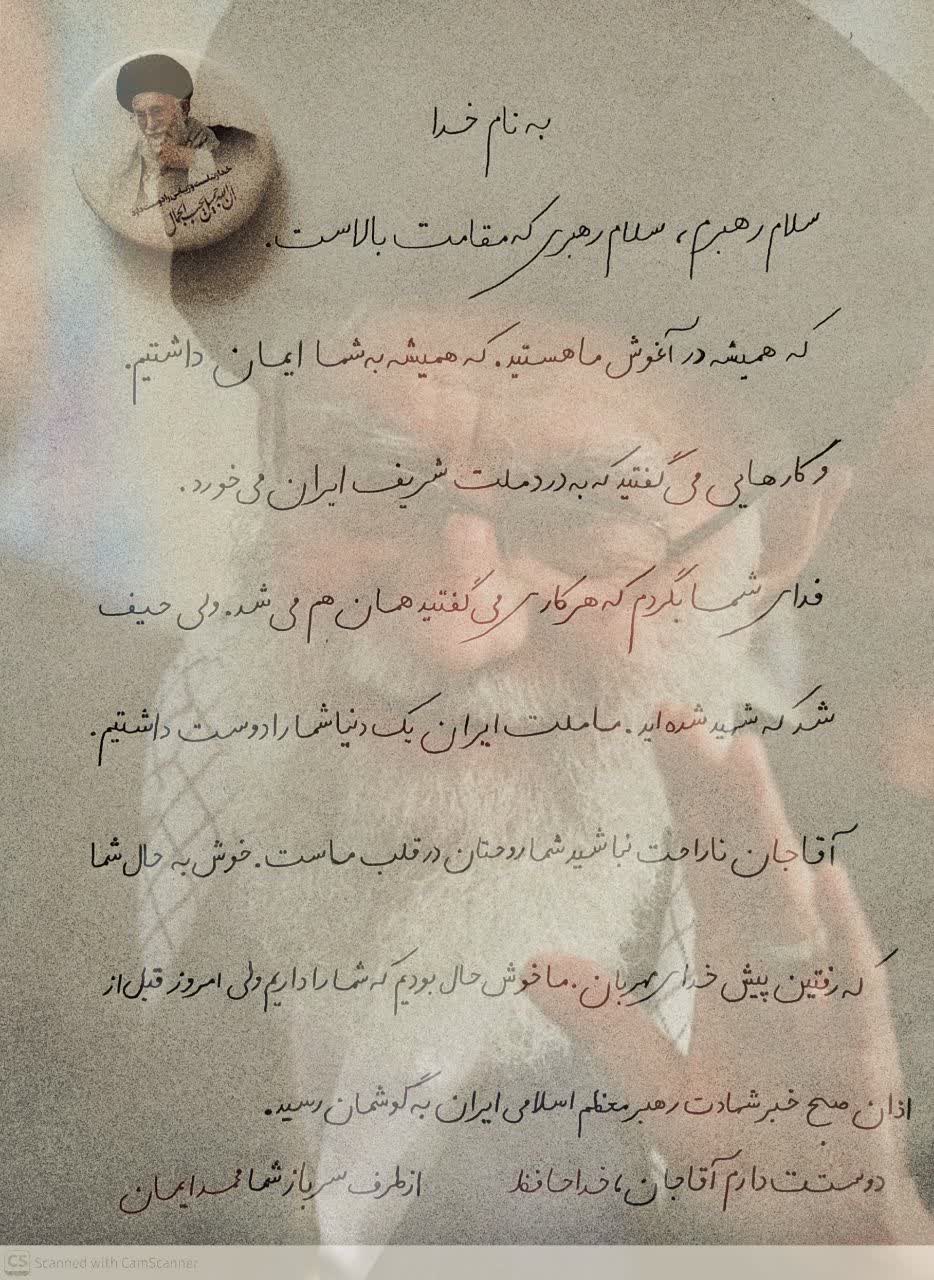 به نام خدا
خدا زیباست و زیبایی را دوست دارد
ان الله جمیل یحب الجمال
سلام رهبرم، سلام رهبری که مقامت بالاست.
که همیشه در آغوش ما هستید. که همیشه به شما ایمان داشتیم.
و کارهایی می گفتید که به درد ملت شریف ایران می خورد.
فدای شما بگردم که هر کاری می گفتید همان هم می شد. ولی حیف
شد که شهید شده اید. ما ملت ایران یک دنیا شما را دوست داشتیم.
آقاجان ناراحت نباشید شما روحتان در قلب ماست. خوش به حال شما
که رفتین پیش خدای مهربان. ما خوش حال بودیم که شما را داریم ولی امروز قبل از
اذان صبح خبر شهادت رهبر معظم اسلامی ایران به گوشمان رسید.
دوستت دارم آقاجان، خداحافظ از طرف سرباز شما محمد ایمان
CS Scanned with CamScanner